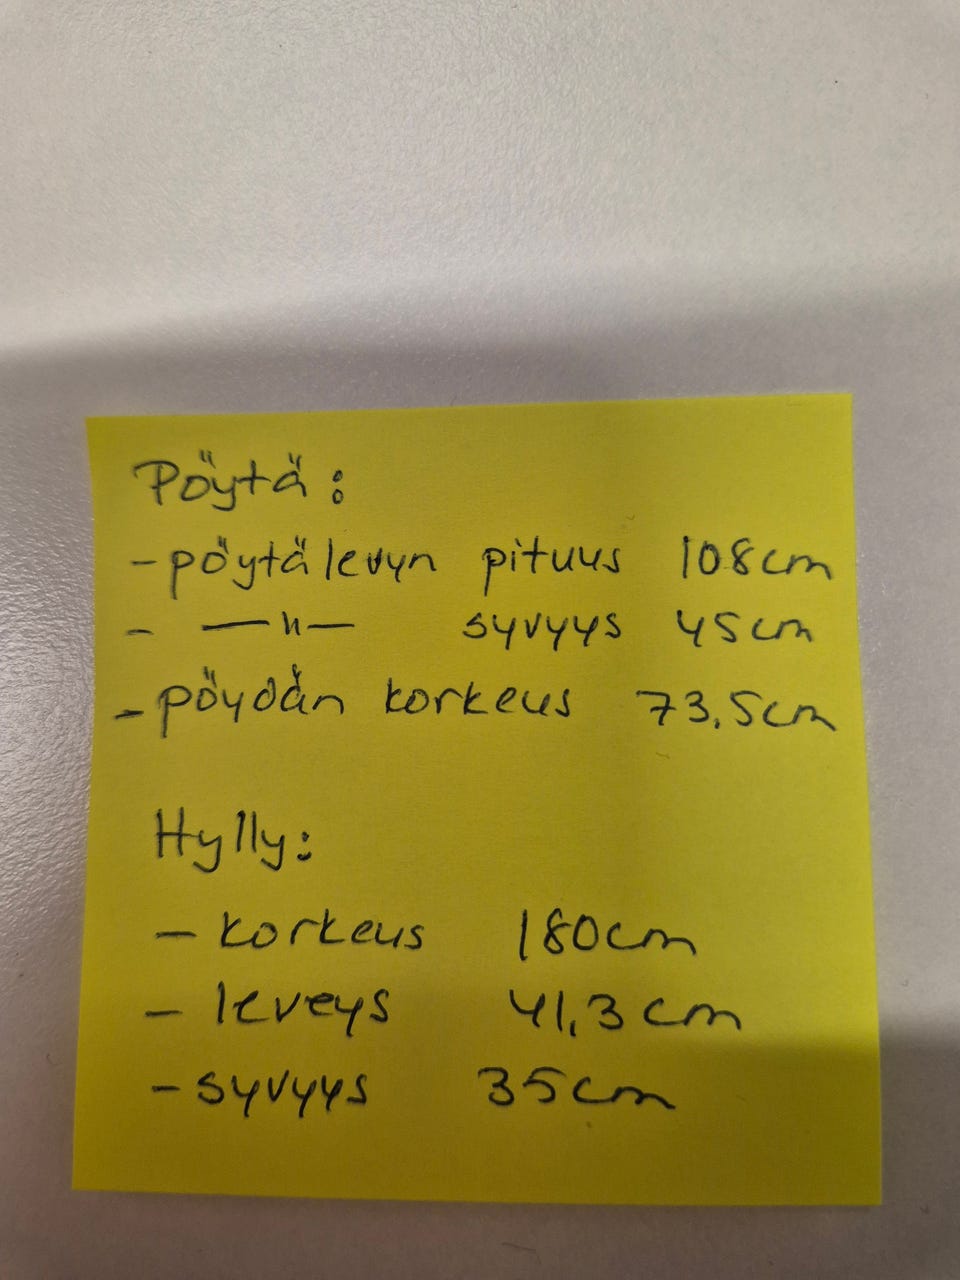 Pöytä:
- pöytälevyn pituus 108cm
- —"— syvyys 45cm
- pöydän korkeus 73,5cm
Hylly:
- korkeus 180cm
- leveys 41,3cm
- syvyys 35cm